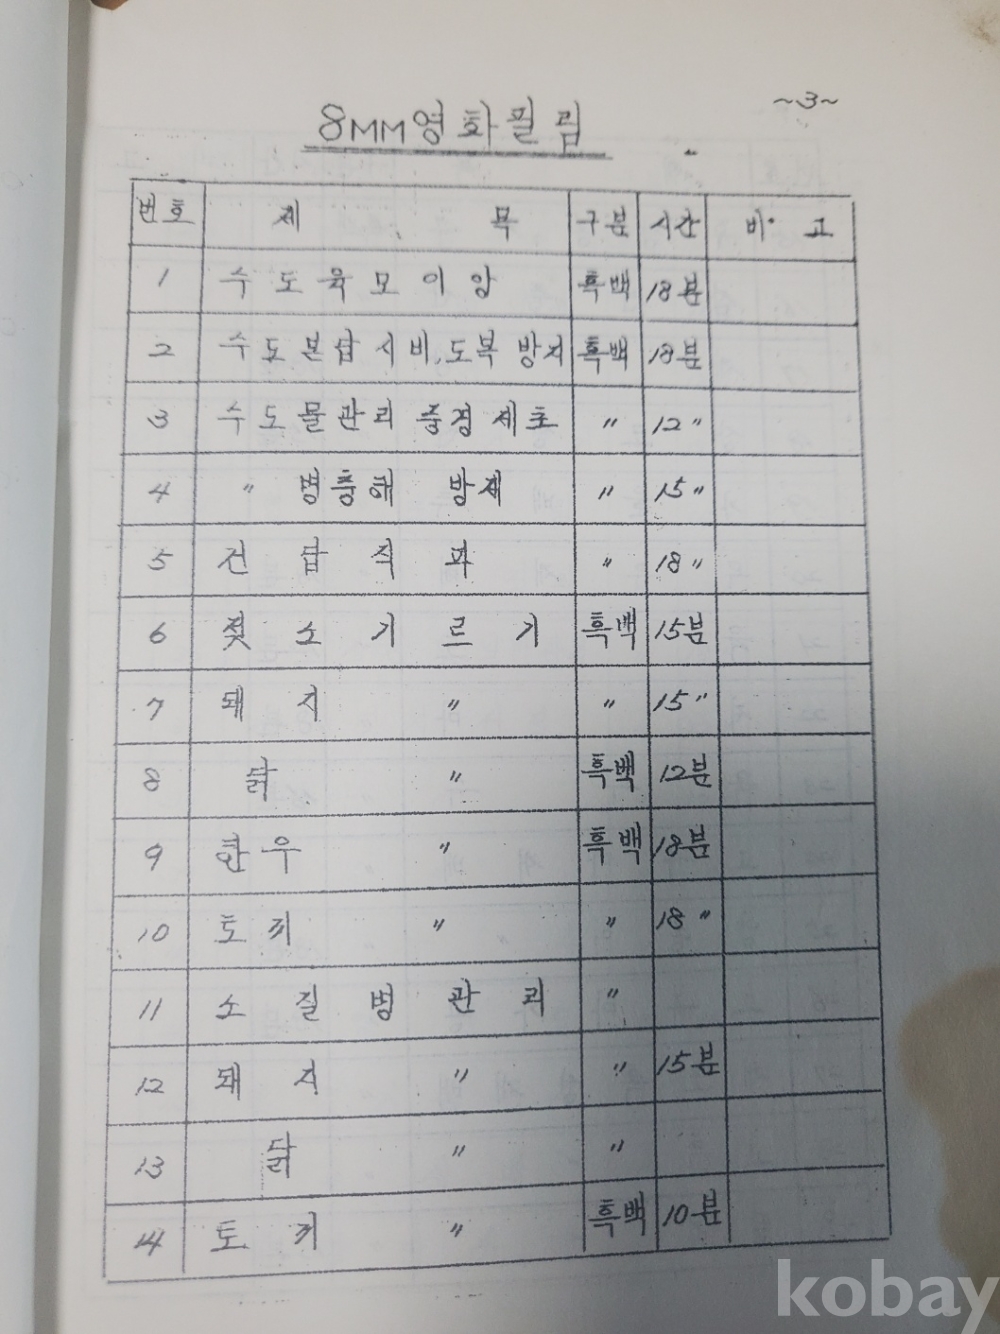 ~3~
8MM영화필림
번호 제 목 구분 시간 비고
1 수도육모이앙 흑백 18분
2 수도본답시비,도복방지 흑백 18분
3 수도물관리 중경제초 〃 12〃
4 〃 병충해 방제 〃 15〃
5 건답직파 〃 18〃
6 젖소기르기 흑백 15분
7 돼지 〃 〃 15〃
8 닭 〃 흑백 12분
9 한우 〃 흑백 18분
10 토끼 〃 〃 18〃
11 소질병관리 〃
12 돼지 〃 〃 15분
13 닭 〃 〃
14 토끼 〃 흑백 10분
kobay